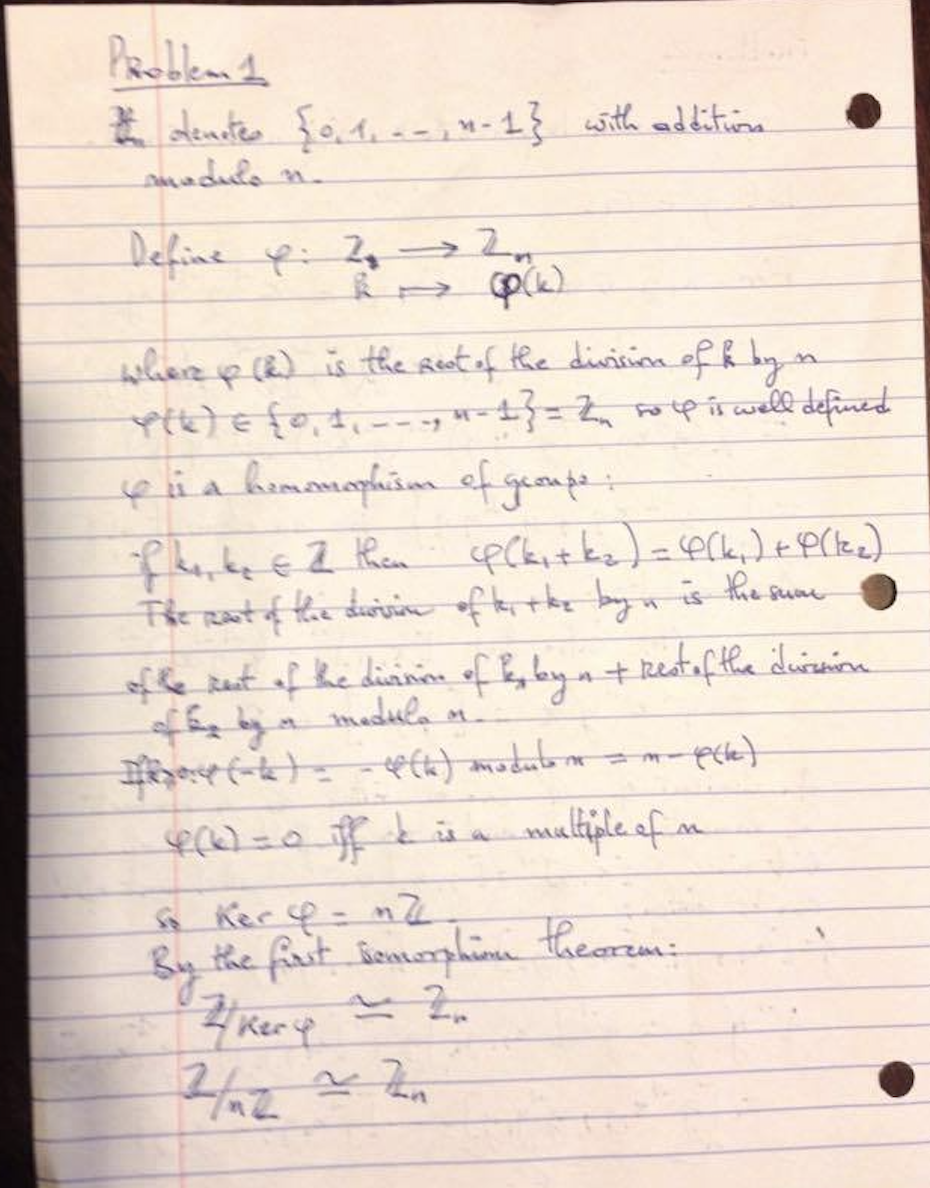 Problem 1
ℤn denotes {0, 1, --, n-1} with addition
modulo n.
Define φ: ℤ → ℤn
k ↦ φ(k)
where φ(k) is the rest of the division of k by n
φ(k) ∈ {0, 1, ---, n-1} = ℤn so φ is well defined
φ is a homomorphism of groups:
if k1, k2 ∈ ℤ then φ(k1+k2) = φ(k1) + φ(k2)
The rest of the division of k1+k2 by n is the sum
of the rest of the division of k1 by n + rest of the division
of k2 by n modulo n.
φ(-k) = -φ(k) modulo n = n-φ(k)
φ(k) = 0 iff k is a multiple of n
so Ker φ = nℤ
By the first isomorphism theorem:
ℤ/Ker φ ≃ ℤn
ℤ/nℤ ≃ ℤn